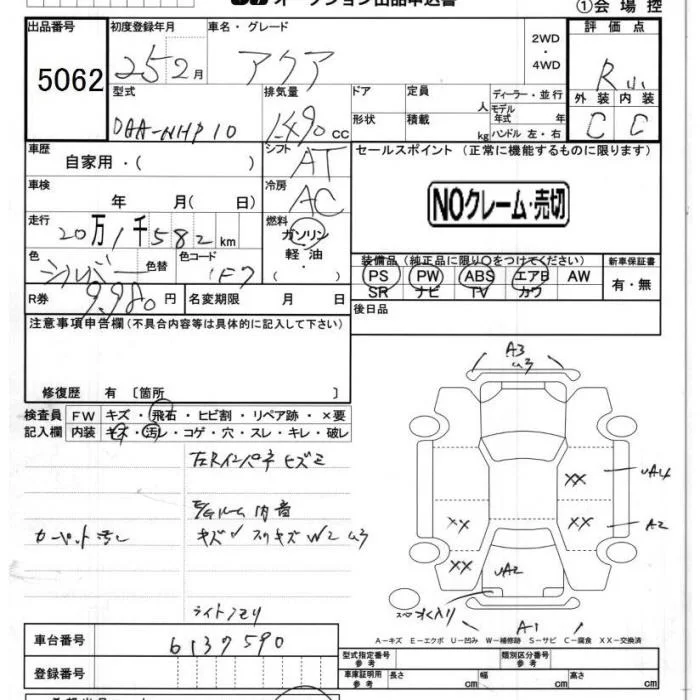 オークション出品申込書
①会場控
出品番号 初度登録年月 車名・グレード 評価点
5062 25 2月 アクア 2WD・4WD R
外装 内装
C C
型式 排気量 ドア 定員 人 ディーラー・並行
DAA-NHP10 1490cc 形状 積載 kg モデル年式 年 ハンドル 左・右
車歴 シフト セールスポイント (正常に機能するものに限ります)
自家用・( ) AT
車検 冷房
年 月( 日) AC NOクレーム・売切
走行 燃料
20万1千582km ガソリン 軽油 ( ・ )
色 色替 色コード 装備品(純正品に限り○をつけてください) 新車保証書
シルバー 1F7 PS PW ABS エアB AW 有・無
SR ナビ TV カワ
R券 9,980円 名変期限 月 日 後日品
注意事項申告欄(不具合内容等は具体的に記入して下さい)
修復歴 有 〔箇所 〕
A3
U3
検査員 FW キズ・飛石・ヒビ割・リペア跡・×要
記入欄 内装 キズ・汚レ・コゲ・穴・スレ・キレ・破レ
左Rインパネ ヒズミ
XX UA4
ルーム内音
XX XX A2
カーペット汚レ キズ スリキズ W2 U3
XX UA2
ライトクモリ
A1
A-キズ E-エクボ U-凹み W-補修跡 S-サビ C-腐食 XX-交換済
車台番号 6137590 型式指定番号 参考 類別区分番号 参考
登録番号 車庫証明用 参考 長さ cm 幅 cm 高さ cm